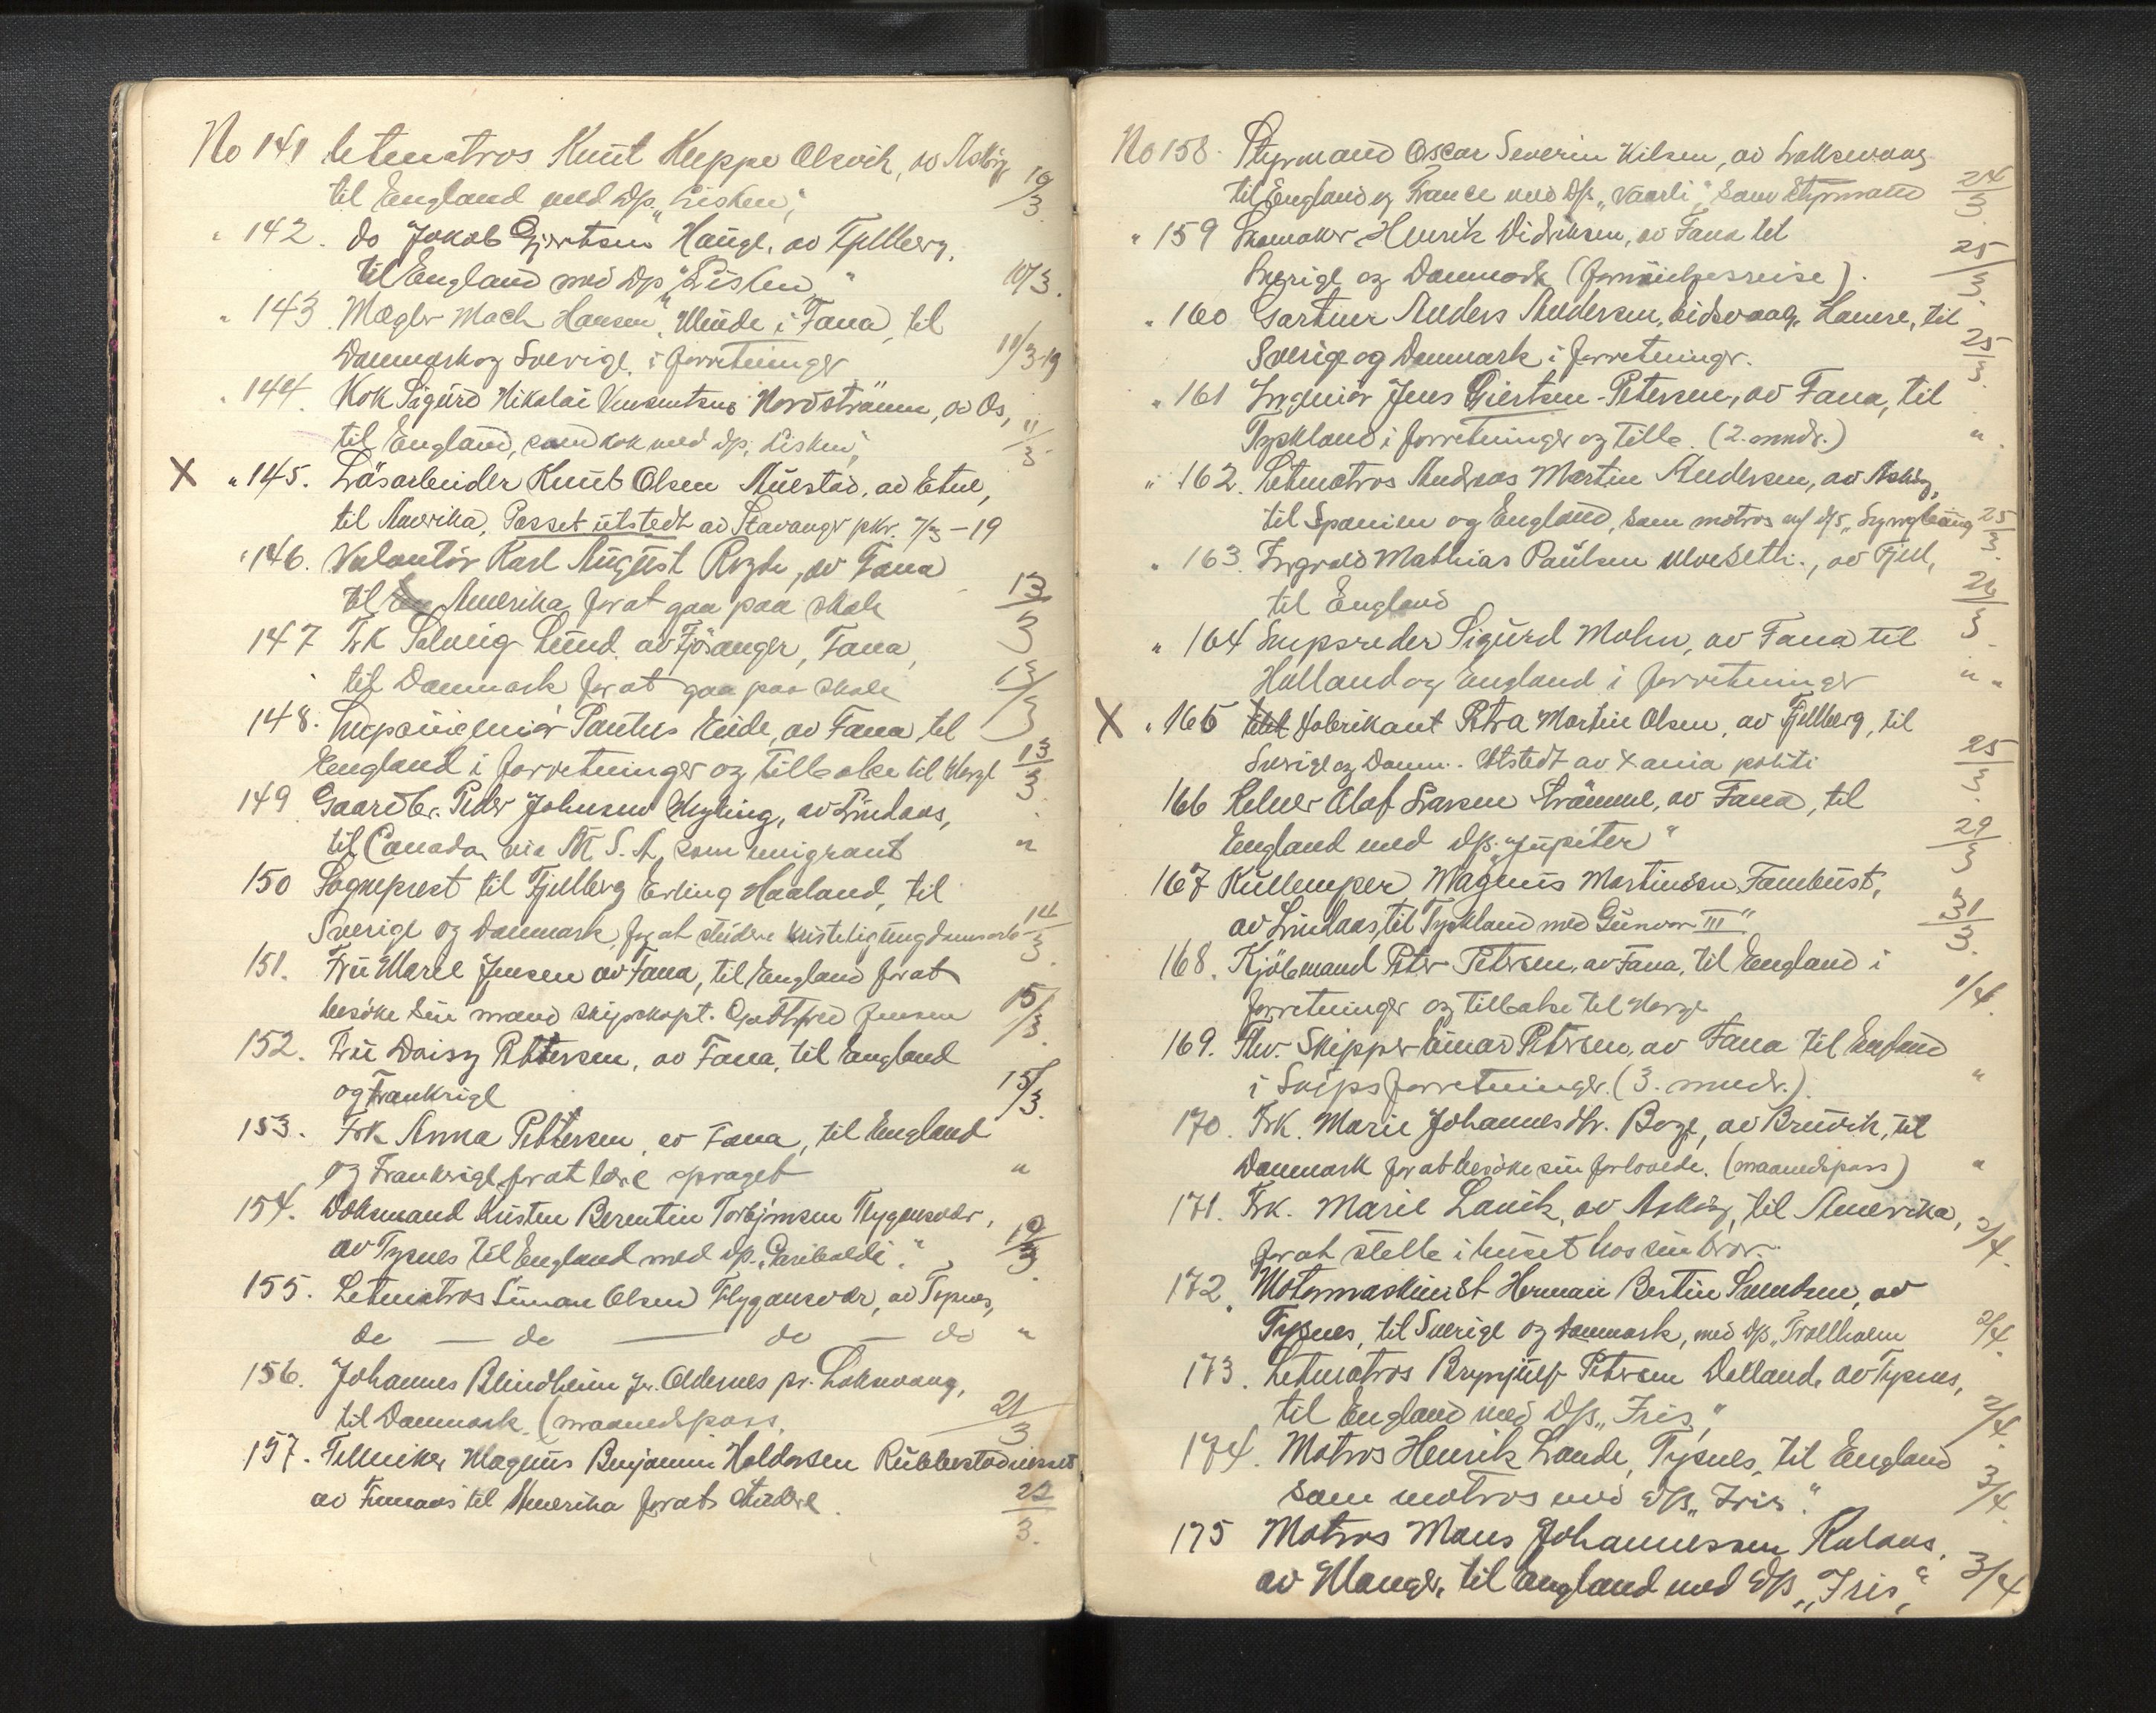 No 141 Letmatros Knut Huppe Olsvik, av Askøy
til England med D/p. "Lisken", 10/3.
" 142. do Jokob Gjertsen Hauge, av Fjellberg,
til England med D/p "Lisken" 10/3.
" 143. Mægler Mach Hansen, Minde i Fana, til
Danmark og Sverige i forretninger 11/3-19
" 144. Kok Sigurd Nikolai Vinsentsen Nordstrømm, av Os,
til England, som kok med D/p. Lisken, 11/3
X " 145. Løsarbeider Knut Olsen Auestad, av Etne,
til Amerika. Passet utstedt av Stavanger pkr. 7/3-19
" 146. Volontør Karl August Rogde, av Fana
til Amerika for at gaa paa skole 13/3
147 Frk Solveig Lund av Fjøsanger, Fana,
til Danmark for at gaa paa skole 13/3
148. Skipsingeniør Eide, av Fana til
England i forretninger og tilbake til Norge 13/3
149 Gaardbr. Peder Johnsen Myking, av Lindaas,
til Canada via U. S. A, som emigrant "
150 Sogneprest til Fjellberg Erling Haaland, til
Sverige og Danmark, for at studere kristelig ungdomsarb. 14/3.
151. Fru Marie Jensen av Fana, til England for at
besøke sin mand skipskapt. Gottfred Jensen 15/3.
152. Fru Daisy Pettersen, av Fana, til England
og Frankrige 15/3.
153. Frk Anna Pettersen, av Fana, til England
og Frankrige for at lære sproget "
154. Dæksmand Kristen Berentin Torbjørnsen Flygansvær,
av Tysnes til England med D/p. "Garibaldi". 19/3.
155. Letmatros Simon Olsen Flygansvær, av Tysnes,
do — do — do — do "
156. Johannes Blindheim jr. Oldernes pr. Laksevaag,
til Danmark. (maanedspass 21/3
157. Tekniker Magnus Benjamin Haldorsen Rubbestadneset
av Finnaas til Amerika for at studere. 22/3.
No 158. Styrmand Oscar Severin Nilsen, av Laksevaag
til England og France med D/p. "Vaarli", som styrmand 24/3
" 159 Skomaker Henrik Didriksen, av Fana til
Sverige og Danmark (fornøielsesreise). 25/3.
" 160 Gartner Anders Andersen, Eidsvaag, Hamre, til
Sverige og Danmark i forretninger. 25/3.
" 161 Ingeniør Jens Giertsen-Petersen, av Fana, til
Tyskland i forretninger og tilb. (2. mndr.) "
" 162. Letmatros Andreas Martin Andersen, av Askøy,
til Spanien og England, som matros m/ D/S. 25/3.
" 163. Ingvald Mathias Paulsen Ulveseth., av Fjell,
til England 26/3.
" 164 Skipsreder Sigurd Mohn, av Fana til
Holland og England i forretninger " "
X " 165 Fabrikant Petra Martin Olsen, av Fjellberg, til
Sverige og Danm. Utstedt av Xania politi 25/3.
166 Selner Olaf Larsen Strømme, av Fana, til
England med D/p. "Jupiter" 29/3
167 Kullemper Magnus Martinsen Fambust,
av Lindaas, til Tyskland med "Gunvor III". 31/3.
168. Kjøbmand Peter Petersen, av Fana, til England i
forretninger og tilbake til Norge 1/4.
169. Fhv. Skipper Einar Petersen, av Fana til England
i Skipsforretninger. (3. mndr.) "
170. Frk. Marie Johannesdtr. Boge, av Bruvik, til
Danmark for at besøke sin forlovede. (maanedspass) "
171. Frk. Marie Lavik, av Askøy, til Amerika,
for at stelle i huset hos sin bror. 2/4.
172. Motormaskinist Herman Bertin Svendsen, av
Tysnes, til Sverige og Danmark, med D/p. "Trollholm 2/4.
173. Letmatros Brynjulf Petersen Dalland, av Tysnes,
til England med D/p. "Iris," 2/4.
174. Matros Henrik Lande, Tysnes, til England
som matros med D/p. "Iris". 3/4.
175 Matros Mons Johannessen Kalaas,
av Manger, til England med D/p "Iris," 3/4